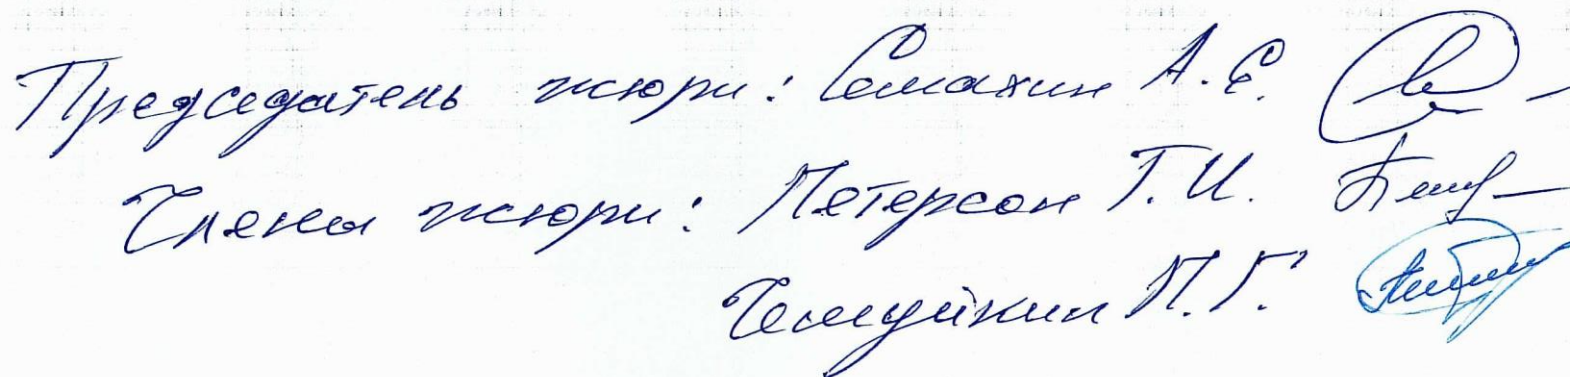 Председатель жюри: Семахин А. Е.
Члены жюри: Петерсон Г. И.
Чешуйкин П. Г.